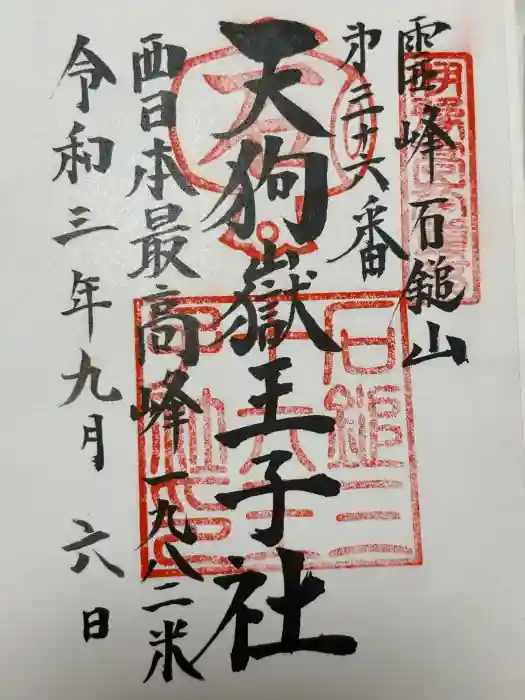 靈峰 石鎚山
第三十六番
天狗嶽王子社
西日本最高峰一九八二米
令和三年九月 六日